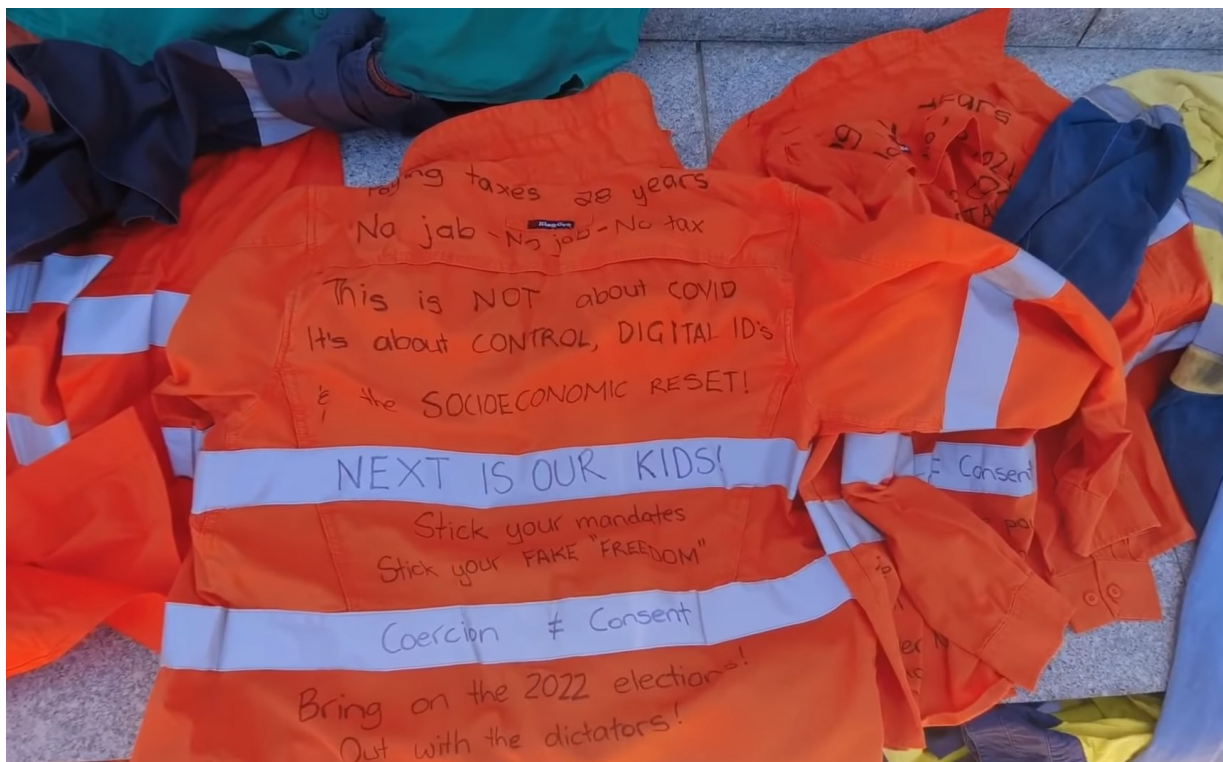 Paying taxes 28 years
No jab - No job - No tax
This is NOT about COVID
It's about CONTROL, DIGITAL ID's
& the SOCIOECONOMIC RESET!
NEXT IS OUR KIDS!
Stick your mandates
Stick your FAKE "FREEDOM"
Coercion ≠ Consent
Bring on the 2022 elections!
Out with the dictators!
Years
≠ Consent